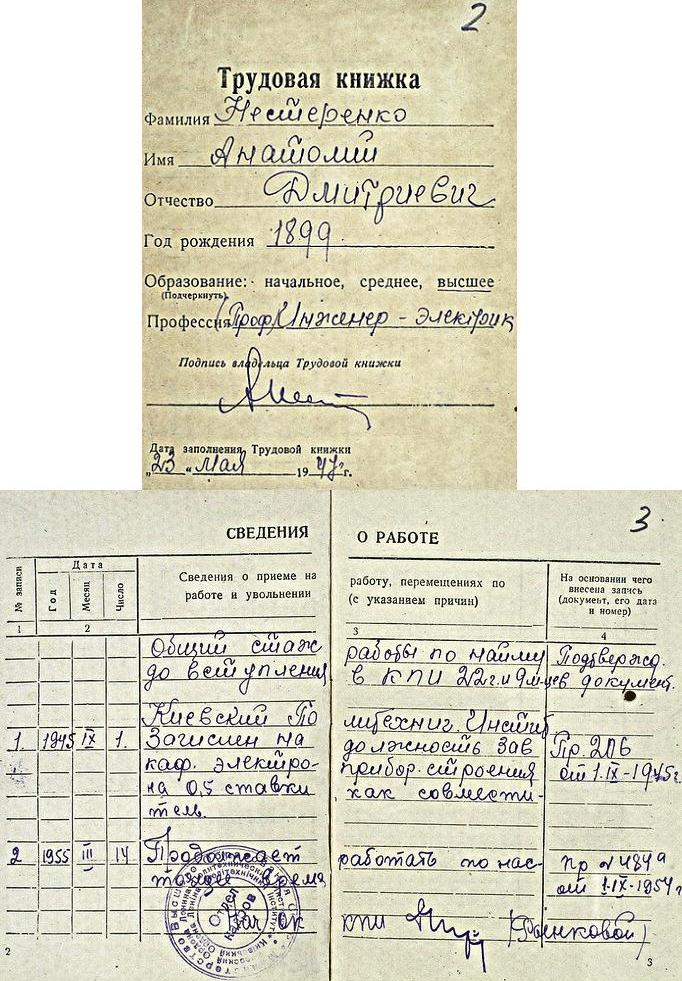 2
Трудовая книжка
Фамилия Нестеренко
Имя Анатолий
Отчество Дмитриевич
Год рождения 1899
Образование: начальное, среднее, высшее
(Подчеркнуть)
Профессия (Проф) Инженер - электрик
Подпись владельца Трудовой книжки
Дата заполнения Трудовой книжки
„23 “ мая 1947 г.
3
СВЕДЕНИЯ О РАБОТЕ
№ записи Дата Сведения о приеме на работу, перемещениях по На основании чего
Год Месяц Число работе и увольнении (с указанием причин) внесена запись
(документ, его дата
и номер)
1 2 3 4
Общий стаж работы по найму Подтвержд.
до вступления в КПИ 22 г. и 9 м-цев документ.
Киевский Политехнич. Инстит
1. 1945 IX 1. Зачислен на должность зав Пр. 206
каф. электроприборостроения от 1.IX-1945г.
на 0,5 ставки как совмести-
тель.
2 1955 III 14 Продолжает работать по нас- пр № 484
тоящее время от 1.IX-1954г
Отдел кадров
Нач ОК КПИ
2
3